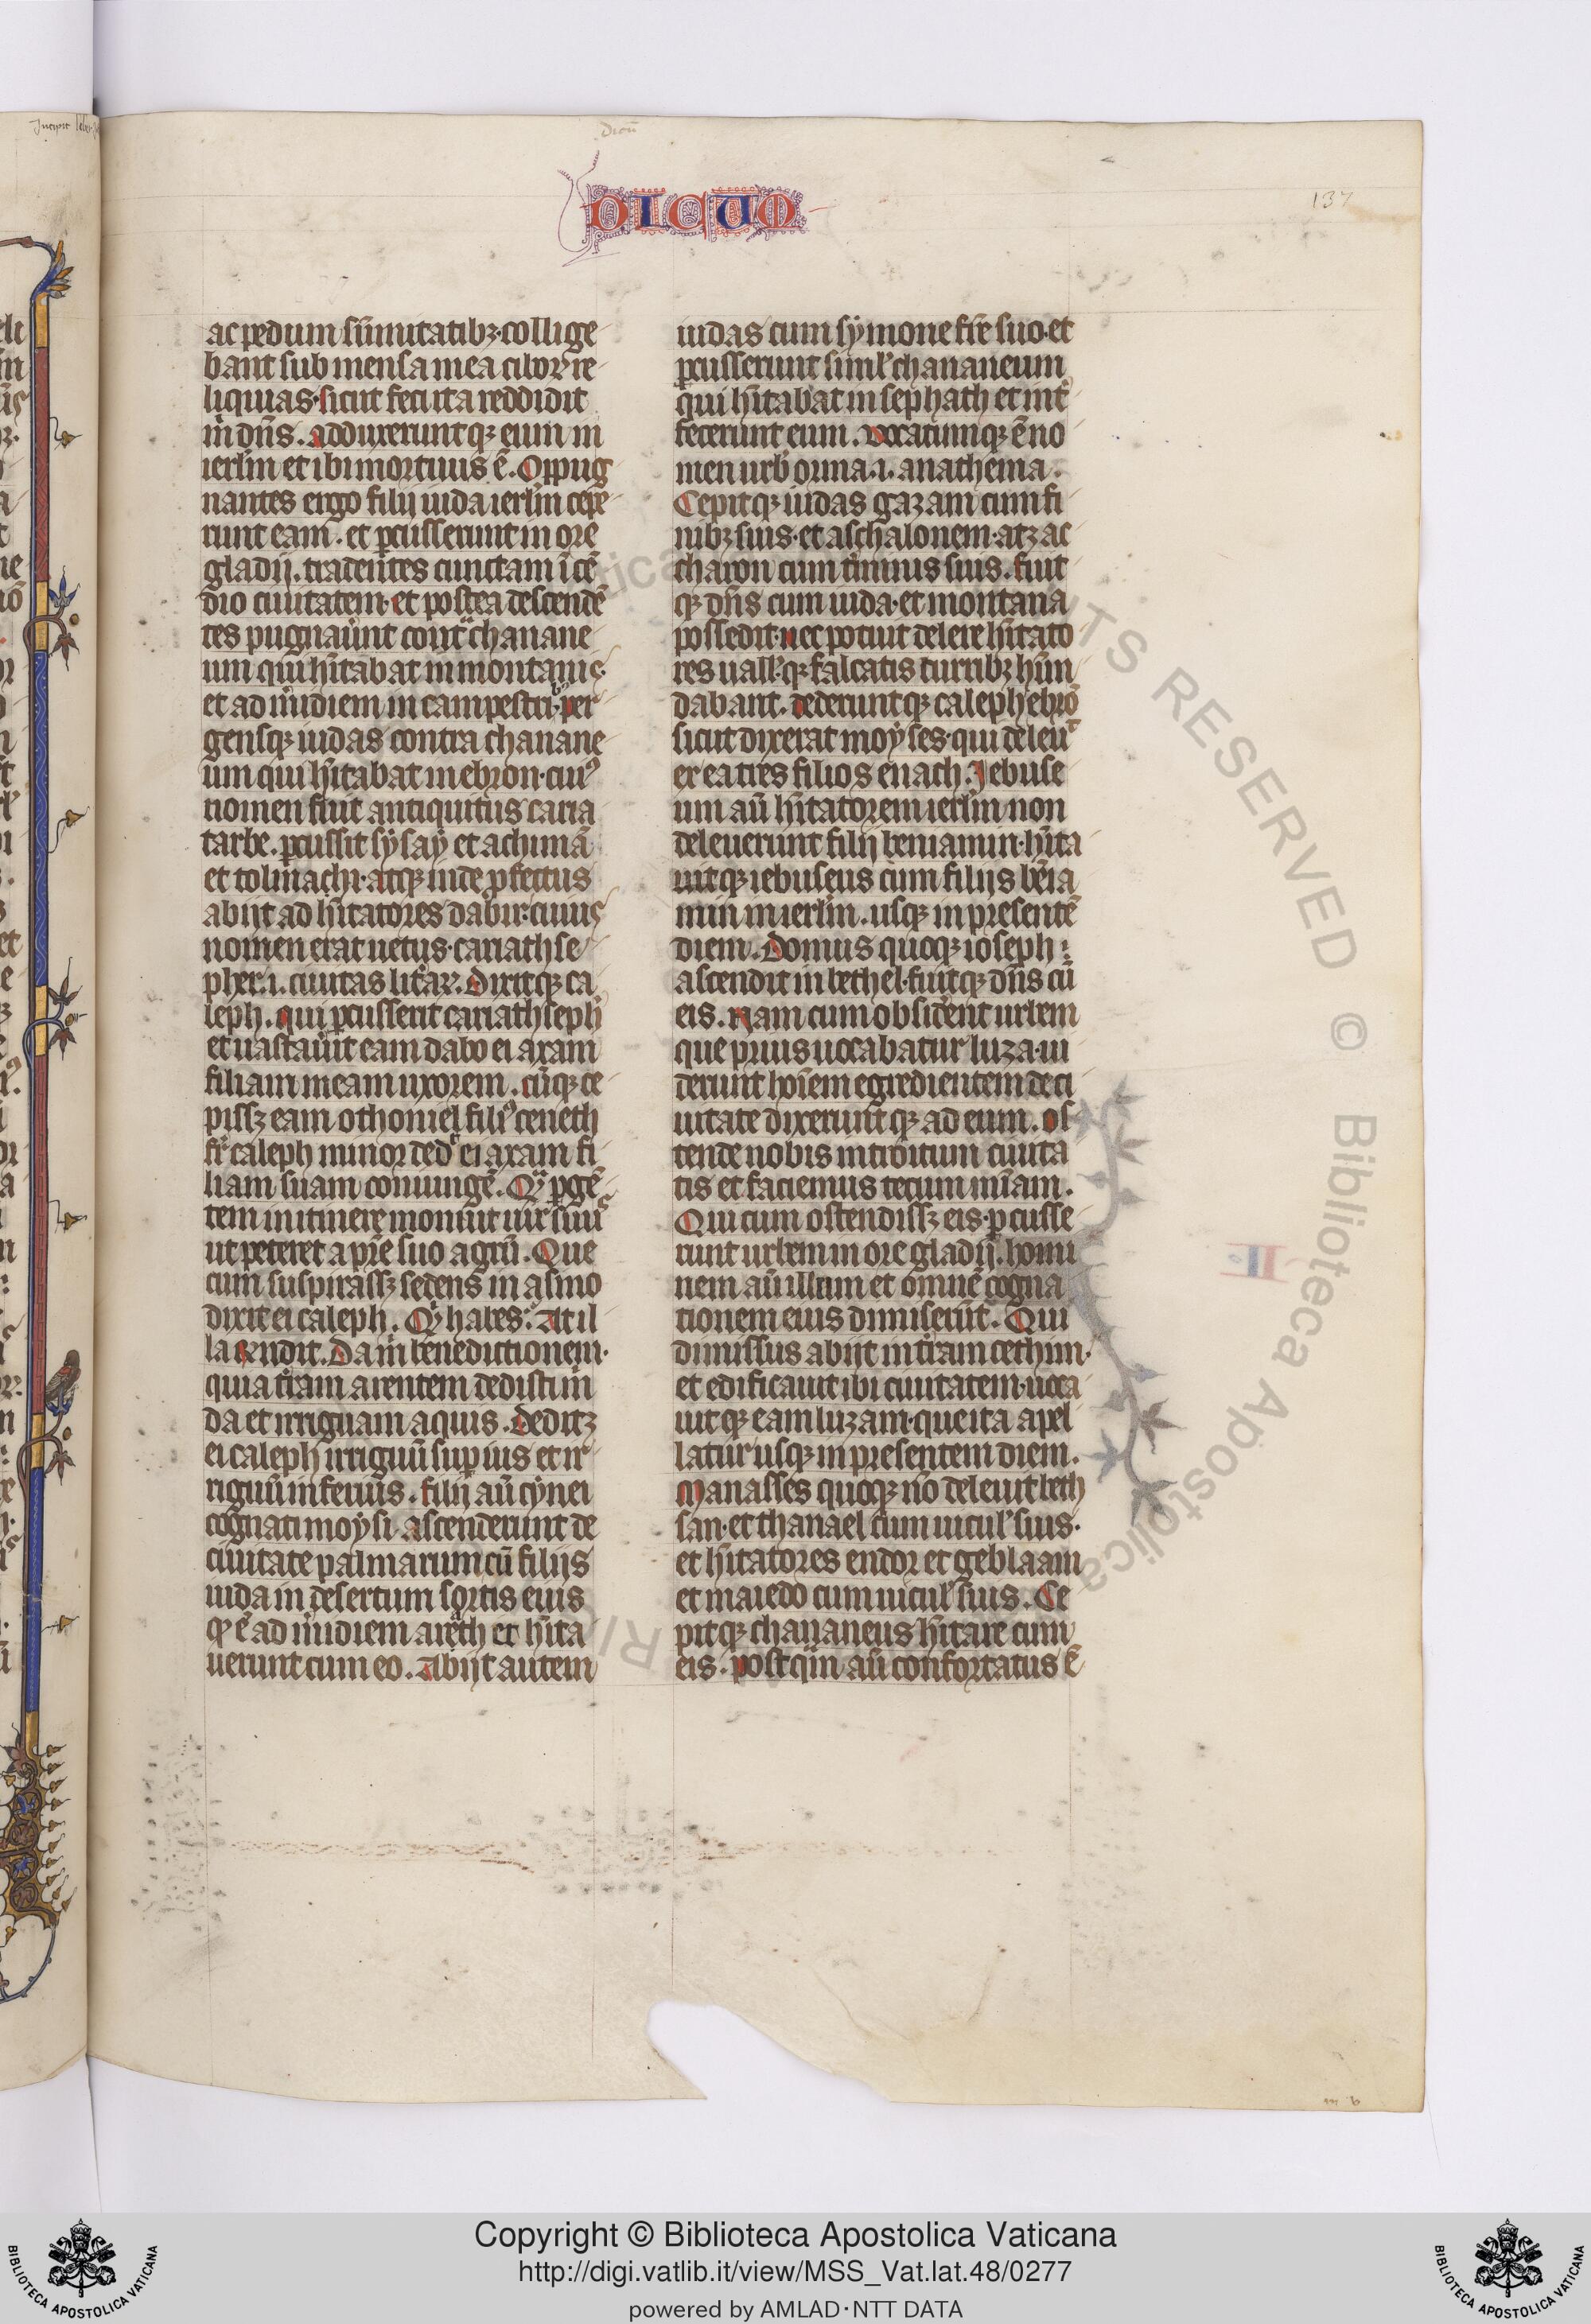 Incipit liber
dicū
DICUM
137
ac pedum sūmitatibꝫ·collige
bant sub mensa mea ciborꝝ re
liquias·sicut feci ita reddidit
m̄ dn̄s. adduxeruntqꝫ eum in
ierl̄m et ibi mortuus ē. Oppug
nantes ergo filij iuda ierl̄m cepe
runt eam. et ꝑcusserunt in ore
gladij. tradentes cunctam īcē
dio ciuitatem·et postea descendē
tes pugnaūnt contᵃ chanane
um qui hītabat in montanis·
et ad m̄idiem in campestribꝰ·per
gensqꝫ iudas contra chanane
um qui hītabat in ebron·cuiꝰ
nomen fuit antiquitus caria
tarbe. ꝑcussit sysay et achimā
et tolmachi·atqꝫ inde ꝓfectus
abijt ad hītatores dabir·cuius
nomen erat uetus·cariathse
pher.i. ciuitas litt̄aꝝ. Dixitqꝫ ca
leph. qui ꝑcusserit cariathseph̄
et uastau̅it eam dabo ei axam
filiam meam uxorem. cūqꝫ ce
pissꝫ eam othoniel filiꝰ ceneth
fr̄ caleph minor dedᵗ ei axam fi
liam suam coniungē. Qᵃ ꝑgē
tem in itinere monuit uir suus
ut peteret a pr̄e suo agrū. Que
cum suspirassꝫ sedens in asino
dixit ei caleph. Qⁱ habes. At il
la rn̄dit. Da m̄ benedictionem·
quia tr̄am arentem dedisti m̄
da et irriguam aquis. Deditꝫ
ei caleph irriguū suꝑius et ir
riguū inferius. filij aū cynei
cognati moysi ascenderunt de
ciuitate palmarum cū filijs
iuda in desertum sortis eius
qᵈ ē ad m̄idiem areth et hīta
uerunt cum eo. Abijt autem
iudas cum symone fr̄e suo·et
ꝑcusserunt siml̄ chananeum
qui hītabat in sephath et int̄
fecerunt eum. uocatumqꝫ ē no
men urb̄ orma.i. anathema.
Cepitqꝫ iudas gazam cum fi
nibꝫ suis·et aschalonem·atꝫ ac
charon cum t̄minis suis. fuit
qꝫ dn̄s cum iuda·et montana
possedit·nec potuit delere hītato
res uall̄·qꝫ falcatis curribꝫ hūn
dabant. dederuntqꝫ caleph ebrō
sicut dixerat moyses·qui deleuᵗ
ex ea tres filios enach. Jebuse
um aū hītatorem ierl̄m non
deleuerunt filij beniamin·hīta
uitqꝫ iebuseus cum filijs bēia
min in ierl̄m. usqꝫ in presentē
diem. Domus quoqꝫ ioseph:
ascendit in bethel·fuitqꝫ dn̄s cū
eis. Nam cum obsiderent urbem
que prius uocabatur luza·ui
derunt hoīem egredientem de ci
uitate dixeruntqꝫ ad eum. os
tende nobis introitum ciuita
tis et faciemus tecum mīam.
Qui cum ostendissꝫ eis·ꝑcusse
runt urbem in ore gladij. homi
nem aū illum et omnē cogna
tionem eius dimiserūt. Qui
dimissus abijt in tr̄am cethim·
et edificauit ibi ciuitatem·uoca
uitqꝫ eam luzam·que ita apel
latur usqꝫ in presentem diem.
Manasses quoqꝫ nō deleuit beth
san·et thanael cum uicul̄ suis·
et hītatores endor et geblaam
et maiedo cum uicul̄ suis. Ce
pitqꝫ chananeus hītare cum
eis. postqm̄ aū confortatus ē
II
Copyright © Biblioteca Apostolica Vaticana
http://digi.vatlib.it/view/MSS_Vat.lat.48/0277
powered by AMLAD·NTT DATA
BIBLIOTECA APOSTOLICA VATICANA
BIBLIOTECA APOSTOLICA VATICANA